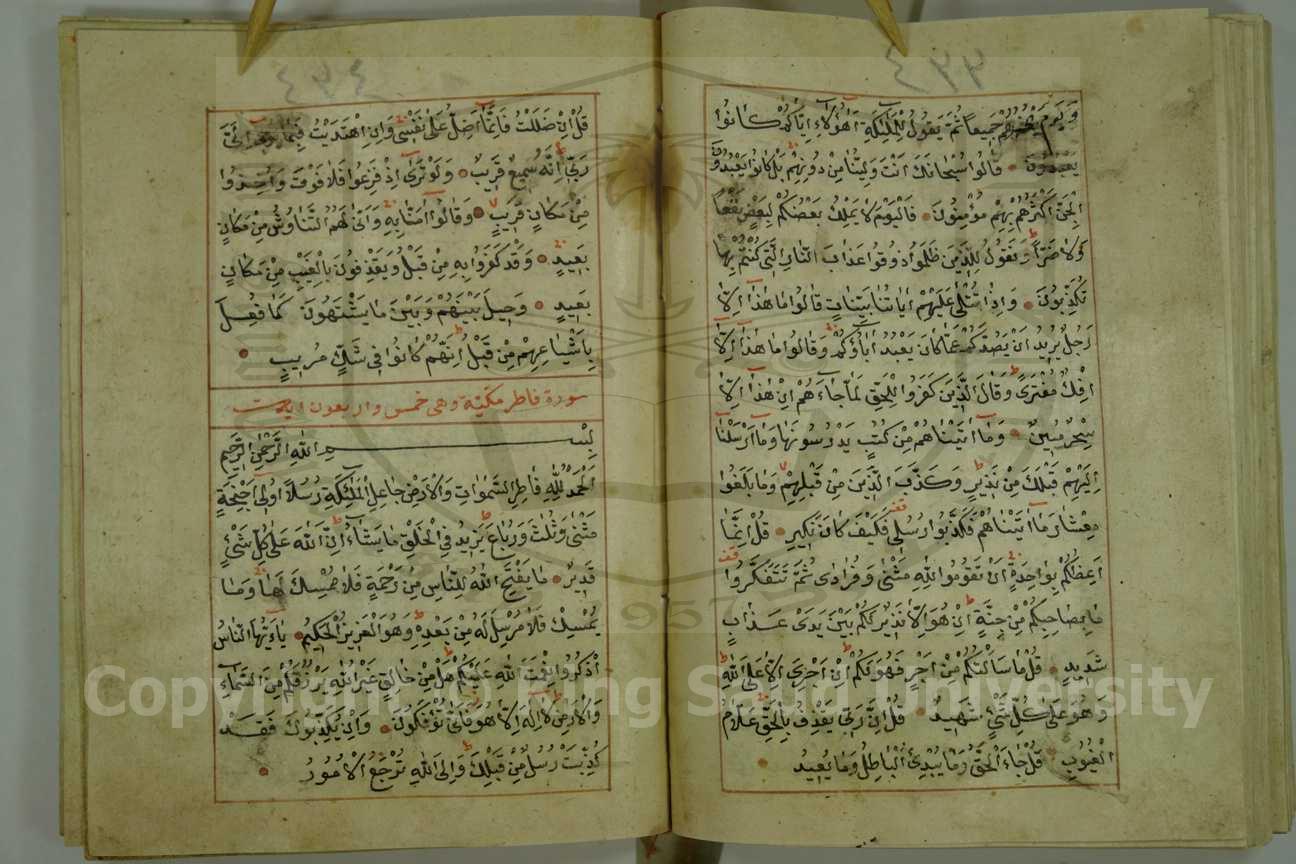 وَيَوْمَ يَحْشُرُهُمْ جَمِيعاً ثُمَّ يَقُولُ لِلْمَلٰئِكَةِ اَهٰؤُلَاءِ اِيَّاكُمْ كَانُوا
يَعْبُدُونَ قَالُوا سُبْحَانَكَ اَنْتَ وَلِيُّنَا مِنْ دُونِهِمْ بَلْ كَانُوا يَعْبُدُونَ
الْجِنَّ اَكْثَرُهُمْ بِهِمْ مُؤْمِنُونَ فَالْيَوْمَ لَا يَمْلِكُ بَعْضُكُمْ لِبَعْضٍ نَفْعاً
وَلَا ضَرّاً وَنَقُولُ لِلَّذِينَ ظَلَمُوا ذُوقُوا عَذَابَ النَّارِ الَّتِي كُنْتُمْ بِهَا
تُكَذِّبُونَ وَاِذَا تُتْلٰى عَلَيْهِمْ اٰيَاتُنَا بَيِّنَاتٍ قَالُوا مَا هٰذَا اِلَّا
رَجُلٌ يُرِيدُ اَنْ يَصُدَّكُمْ عَمَّا كَانَ يَعْبُدُ اٰبَاؤُكُمْ وَقَالُوا مَا هٰذَا اِلَّا
اِفْكٌ مُفْتَرًى وَقَالَ الَّذِينَ كَفَرُوا لِلْحَقِّ لَمَّا جَاءَهُمْ اِنْ هٰذَا اِلَّا
سِحْرٌ مُبِينٌ وَمَا اٰتَيْنَاهُمْ مِنْ كُتُبٍ يَدْرُسُونَهَا وَمَا اَرْسَلْنَا
اِلَيْهِمْ قَبْلَكَ مِنْ نَذِيرٍ وَكَذَّبَ الَّذِينَ مِنْ قَبْلِهِمْ وَمَا بَلَغُوا
مِعْشَارَ مَا اٰتَيْنَاهُمْ فَكَذَّبُوا رُسُلِي فَكَيْفَ كَانَ نَكِيرِ قُلْ اِنَّمَا
اَعِظُكُمْ بِوَاحِدَةٍ اَنْ تَقُومُوا لِلّٰهِ مَثْنٰى وَفُرَادٰى ثُمَّ تَتَفَكَّرُوا
مَا بِصَاحِبِكُمْ مِنْ جِنَّةٍ اِنْ هُوَ اِلَّا نَذِيرٌ لَكُمْ بَيْنَ يَدَيْ عَذَابٍ
شَدِيدٍ قُلْ مَا سَاَلْتُكُمْ مِنْ اَجْرٍ فَهُوَ لَكُمْ اِنْ اَجْرِيَ اِلَّا عَلَى اللّٰهِ
وَهُوَ عَلٰى كُلِّ شَيْءٍ شَهِيدٌ قُلْ اِنَّ رَبِّي يَقْذِفُ بِالْحَقِّ عَلَّامُ
الْغُيُوبِ قُلْ جَاءَ الْحَقُّ وَمَا يُبْدِئُ الْبَاطِلُ وَمَا يُعِيدُ
قُلْ اِنْ ضَلَلْتُ فَاِنَّمَا اَضِلُّ عَلٰى نَفْسِي وَاِنِ اهْتَدَيْتُ فَبِمَا يُوحِي اِلَيَّ
رَبِّي اِنَّهُ سَمِيعٌ قَرِيبٌ وَلَوْ تَرٰى اِذْ فَزِعُوا فَلَا فَوْتَ وَاُخِذُوا
مِنْ مَكَانٍ قَرِيبٍ وَقَالُوا اٰمَنَّا بِهِ وَاَنّٰى لَهُمُ التَّنَاوُشُ مِنْ مَكَانٍ
بَعِيدٍ وَقَدْ كَفَرُوا بِهِ مِنْ قَبْلُ وَيَقْذِفُونَ بِالْغَيْبِ مِنْ مَكَانٍ
بَعِيدٍ وَحِيلَ بَيْنَهُمْ وَبَيْنَ مَا يَشْتَهُونَ كَمَا فُعِلَ
بِاَشْيَاعِهِمْ مِنْ قَبْلُ اِنَّهُمْ كَانُوا فِي شَكٍّ مُرِيبٍ
سورة فاطر مكية وهى خمس واربعون ايت
بِسْمِ اللّٰهِ الرَّحْمٰنِ الرَّحِيمِ
اَلْحَمْدُ لِلّٰهِ فَاطِرِ السَّمٰوَاتِ وَالْاَرْضِ جَاعِلِ الْمَلٰئِكَةِ رُسُلًا اُولِي اَجْنِحَةٍ
مَثْنٰى وَثُلٰثَ وَرُبَاعَ يَزِيدُ فِي الْخَلْقِ مَا يَشَاءُ اِنَّ اللّٰهَ عَلٰى كُلِّ شَيْءٍ
قَدِيرٌ مَا يَفْتَحِ اللّٰهُ لِلنَّاسِ مِنْ رَحْمَةٍ فَلَا مُمْسِكَ لَهَا وَمَا
يُمْسِكْ فَلَا مُرْسِلَ لَهُ مِنْ بَعْدِهِ وَهُوَ الْعَزِيزُ الْحَكِيمُ يَا اَيُّهَا النَّاسُ
اذْكُرُوا نِعْمَتَ اللّٰهِ عَلَيْكُمْ هَلْ مِنْ خَالِقٍ غَيْرُ اللّٰهِ يَرْزُقُكُمْ مِنَ السَّمَاءِ
وَالْاَرْضِ لَا اِلٰهَ اِلَّا هُوَ فَاَنّٰى تُؤْفَكُونَ وَاِنْ يُكَذِّبُوكَ فَقَدْ
كُذِّبَتْ رُسُلٌ مِنْ قَبْلِكَ وَاِلَى اللّٰهِ تُرْجَعُ الْاُمُورُ
Copyright © King Saud University
1957